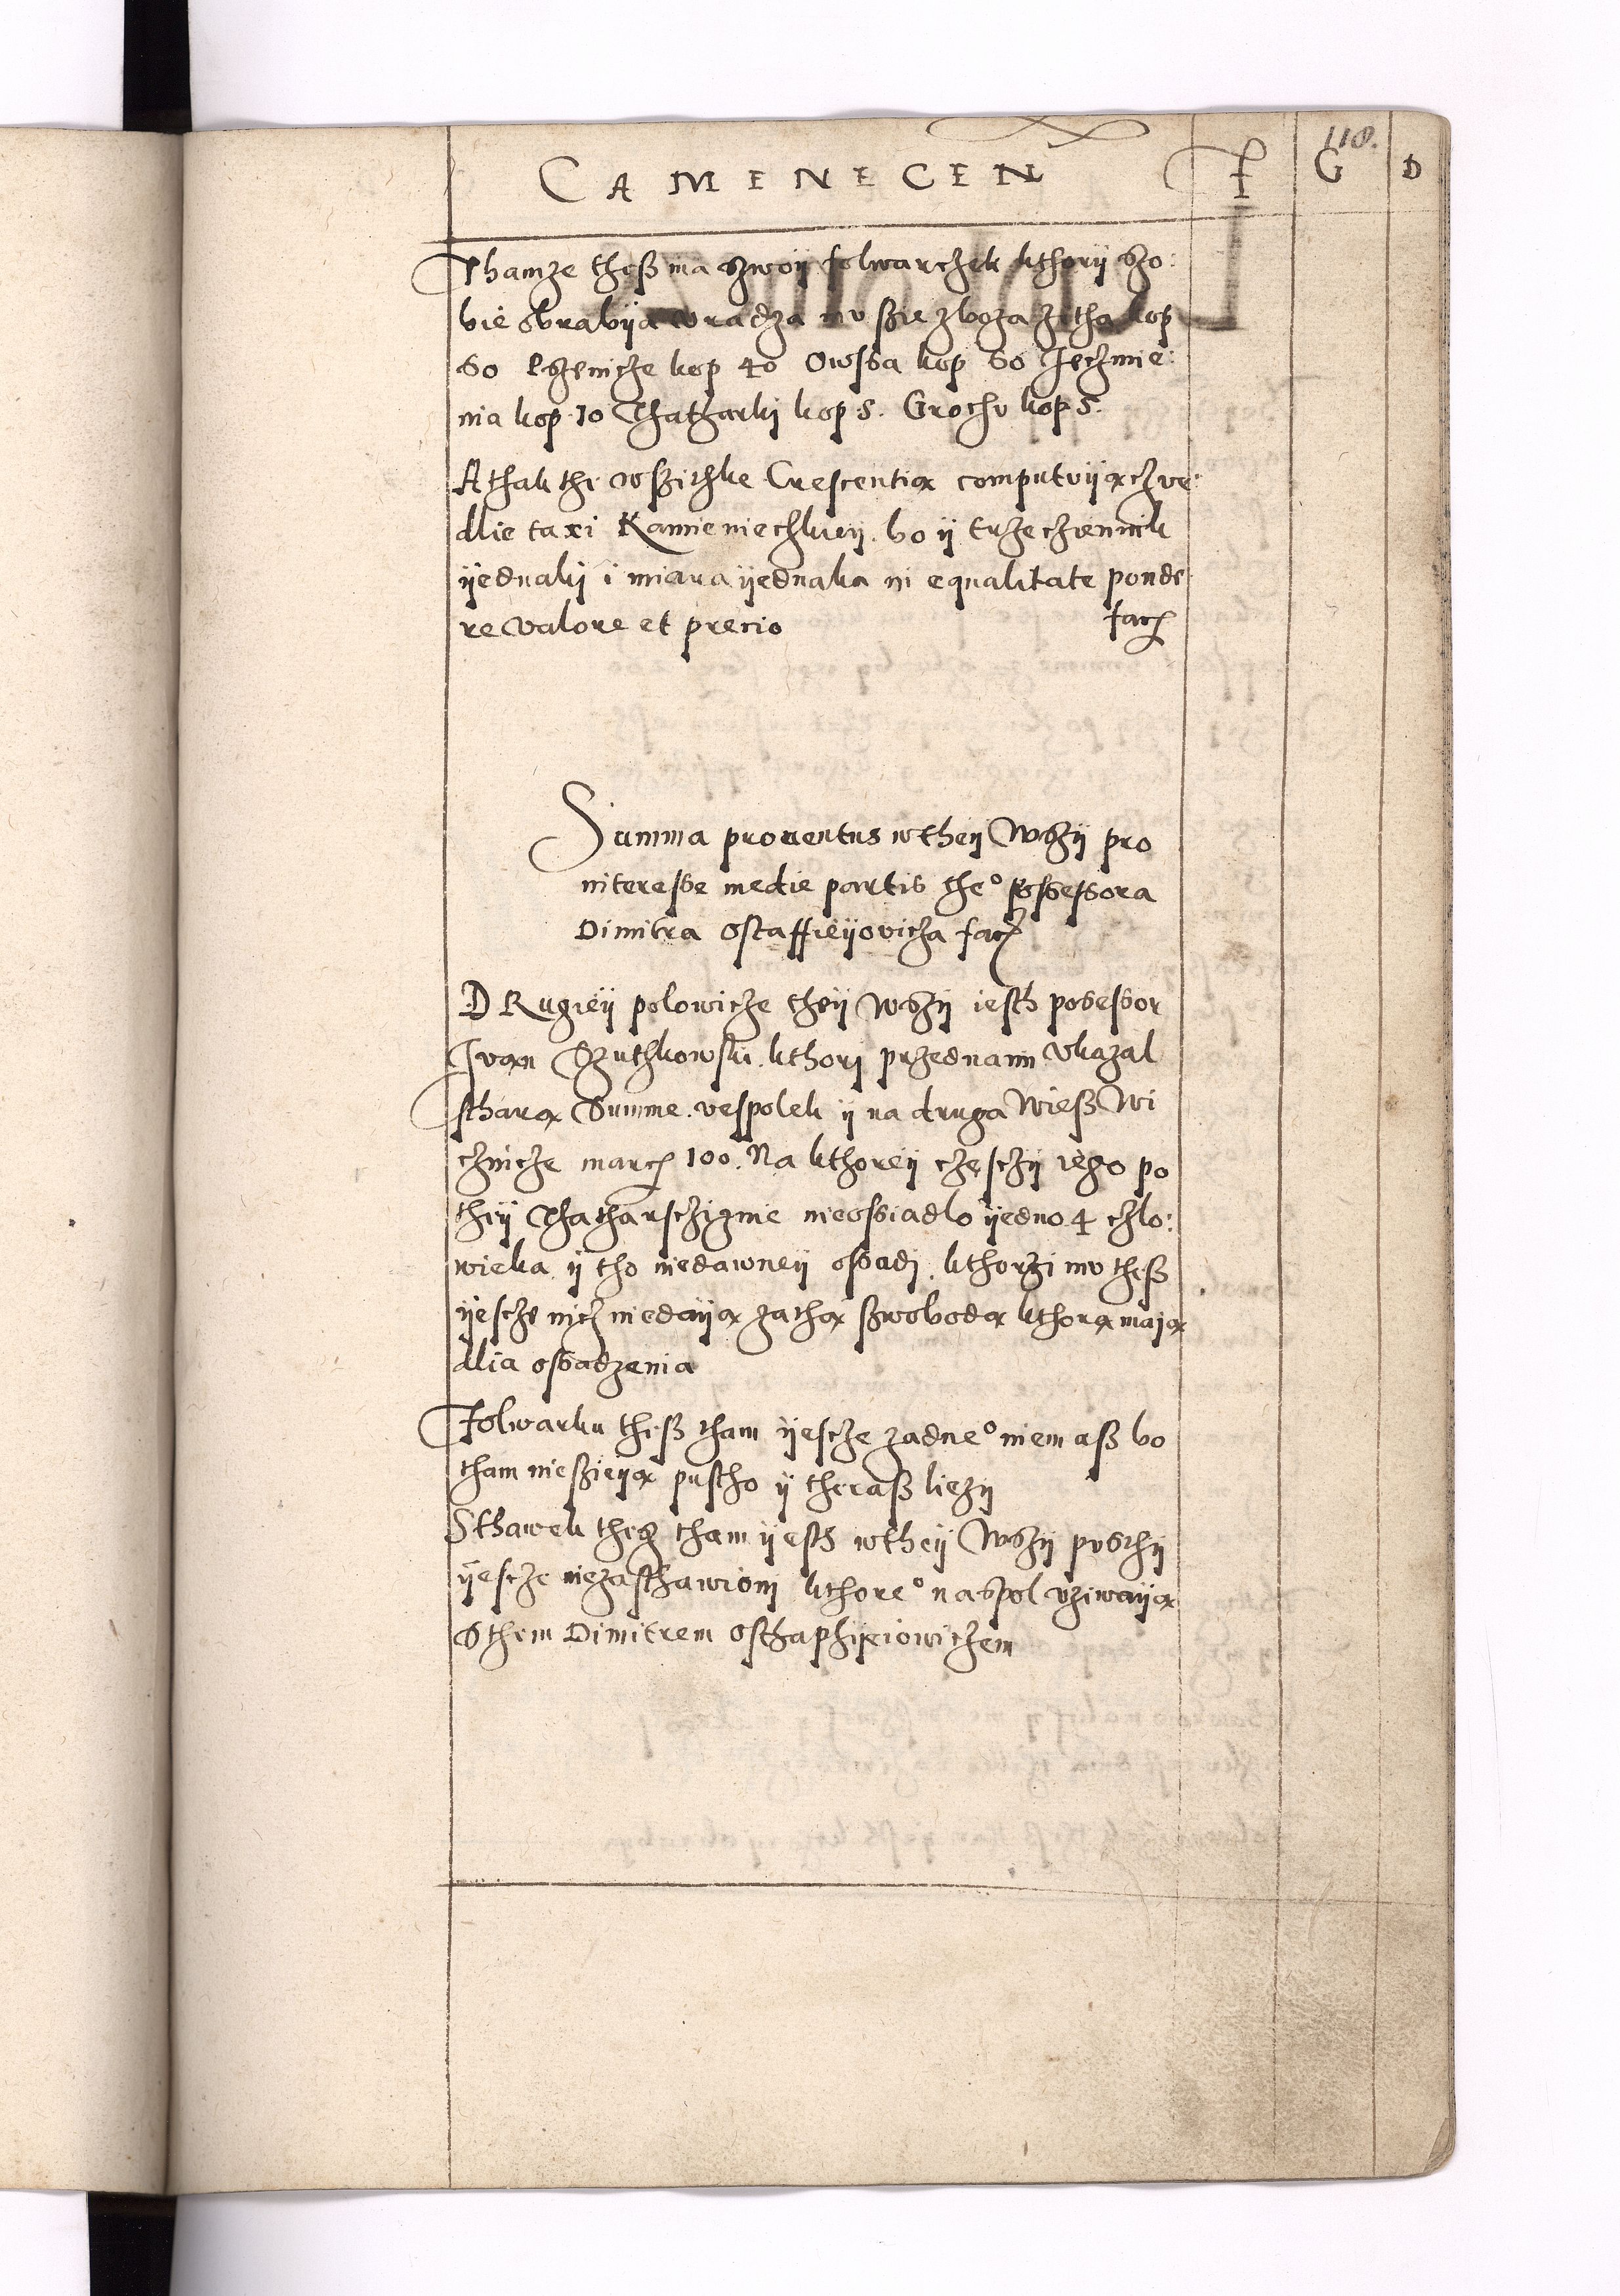 118.
CAMENECEN F G D
Thamze theß ma szwoÿ folwarczek kthorÿ szo:
bie sbrabÿa vradza mv szie zboza zitha kop
60 Pszenicze kop 40 Owssa kop 60 Jeczmie:
nia kop 10 Thatharki kop 5. Grochv kop 5.
A thak thi wszithke Crescentią computvÿą czve
dlie taxi Kamienieczkieÿ. bo ÿ trzecziennik
ÿednakÿ i miara ÿednaka in equalitate ponde
re valore et precio facꝫ
Summa proventus wtheÿ Wszÿ pro
interesse medie partis the° possessora
Dimitra Ostaffieÿovicza facꝫ
DRugieÿ polowicze theÿ Wszÿ iesth possessor
Jvan kthori przednami Vkazal
stharą Summe. vespolek ÿ na druga Wieß Wi
cznicze marcꝫ 100. Na kthoreÿ częsczÿ iego po
theÿ Thatharsczignie nieossiadlo ÿedno 4 czlo:
wieka ÿ tho niedawneÿ ossadi. kthorzi mv theß
ÿescze nicz niedaÿą za thą szwobodą kthorą mają
dlia ossadzenia
Folwarku theß tham ÿescze zadne° niemaß bo
tham niesieÿą pustho ÿ theraß liezÿ
Sthawek thesz tham ÿesth wtheÿ Wszÿ pusthÿ
ÿescze niezasthawioni kthore° naspol vziwaÿą
S them Dimitrem Osthaphÿeiowiczem